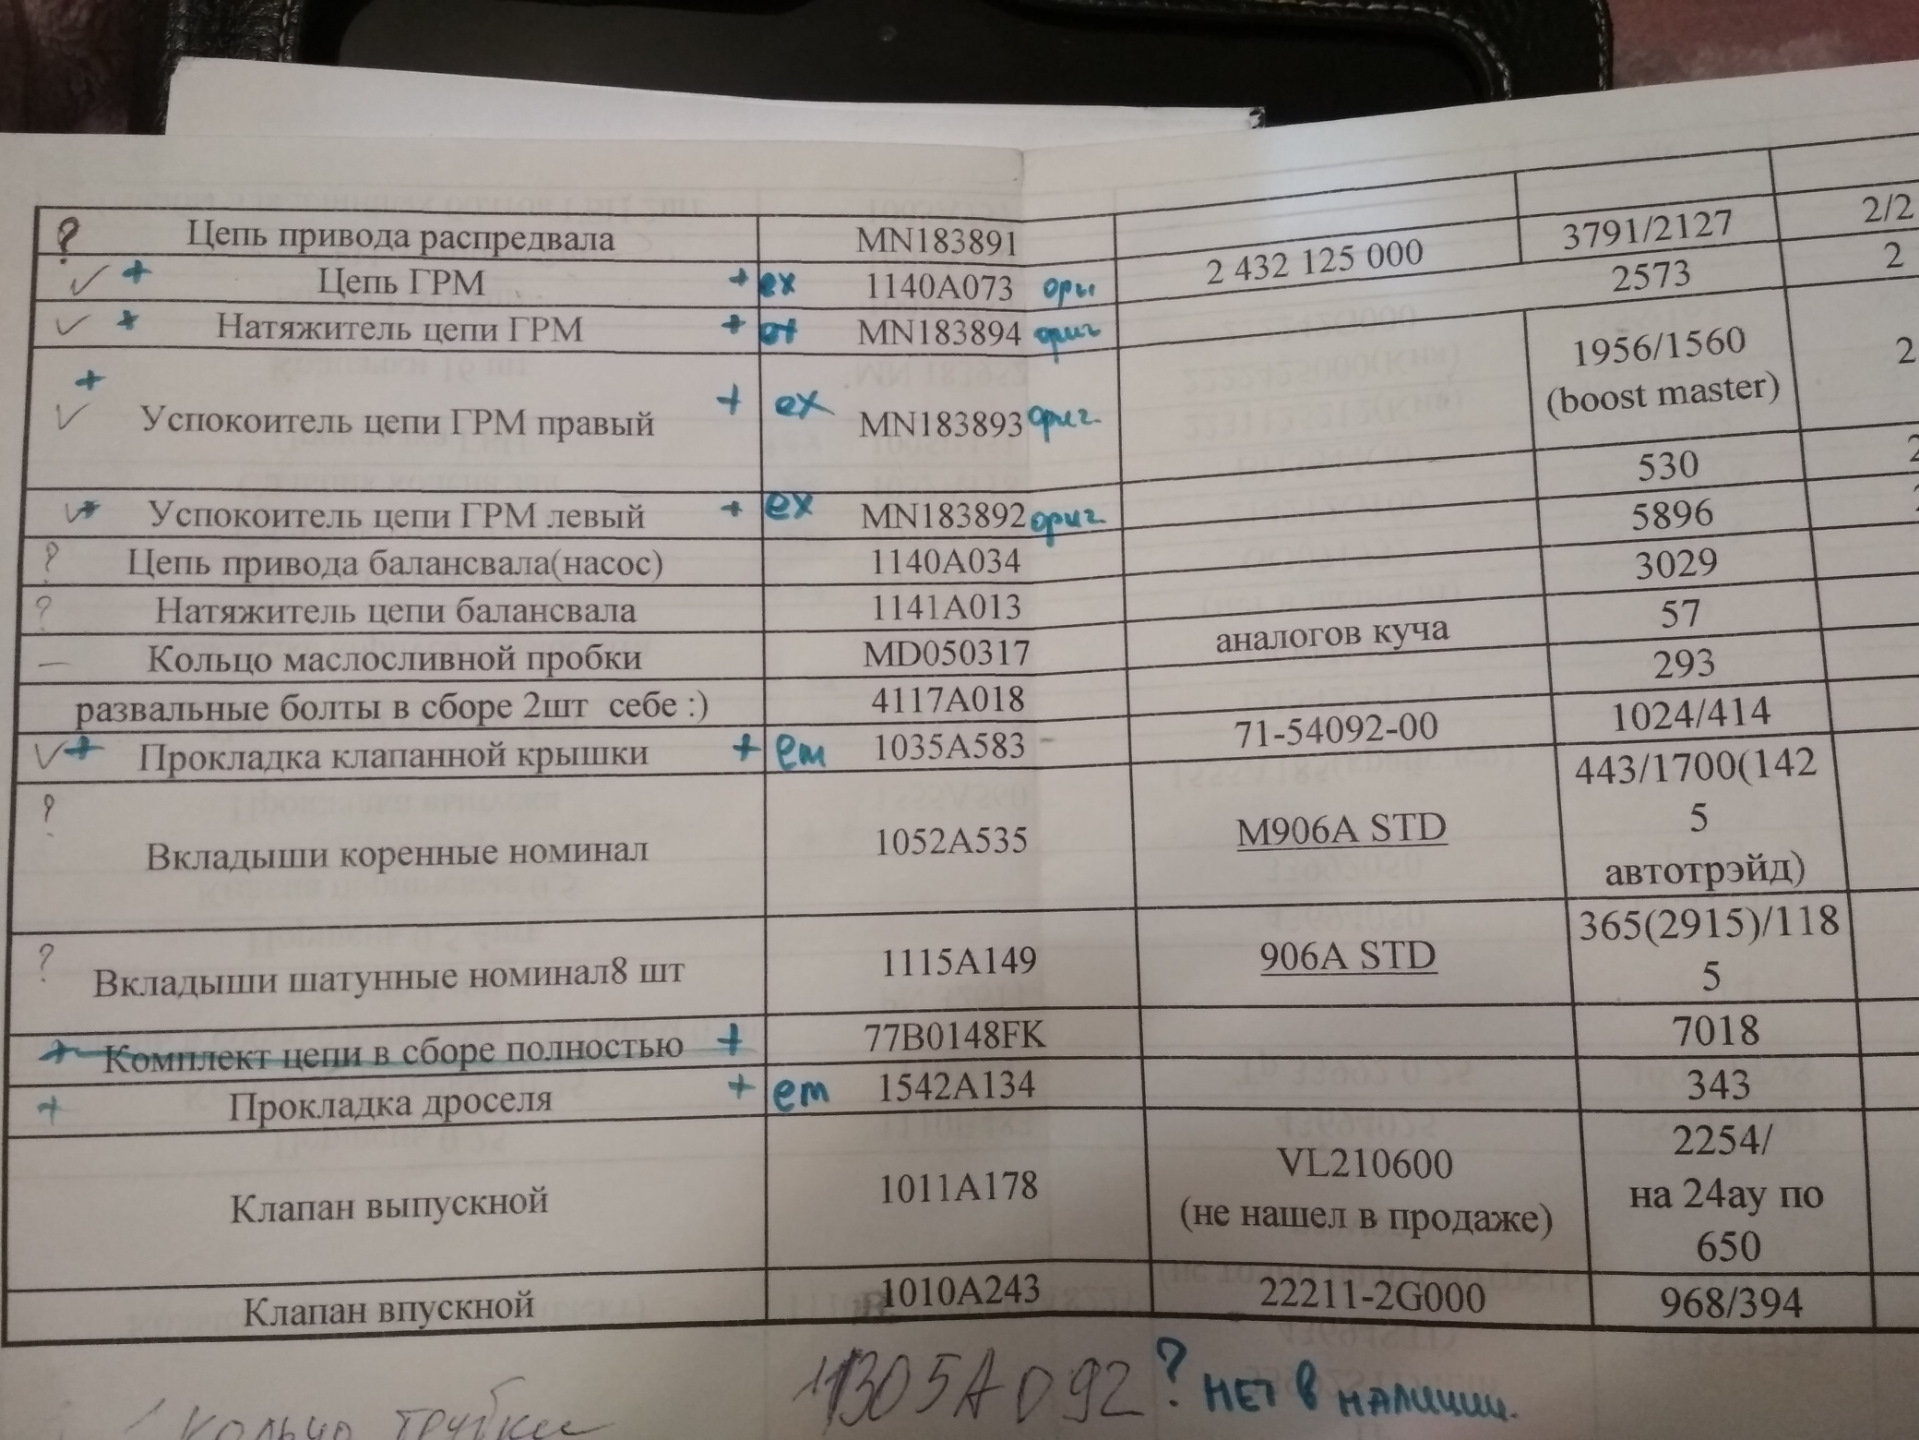 ? Цепь привода распредвала MN183891 3791/2127 2/2
✓ + Цепь ГРМ + ех 1140A073 оры 2 432 125 000 2573 2
✓ + Натяжитель цепи ГРМ + от MN183894 ориг
1956/1560
(boost master)
2
+
✓ Успокоитель цепи ГРМ правый + ех MN183893 ориг.
530
✓+ Успокоитель цепи ГРМ левый + ех MN183892 ориг. 5896
? Цепь привода балансвала(насос) 1140A034 3029
? Натяжитель цепи балансвала 1141A013 57
— Кольцо маслосливной пробки MD050317 аналогов куча 293
развальные болты в сборе 2шт себе :) 4117A018
✓+ Прокладка клапанной крышки + ет 1035A583 - 71-54092-00 1024/414
? Вкладыши коренные номинал 1052A535 M906A STD 443/1700(142
5
автотрэйд)
? Вкладыши шатунные номинал8 шт 1115A149 906A STD 365(2915)/118
5
+ Комплект цепи в сборе полностью + 77B0148FK 7018
+ Прокладка дроселя + ет 1542A134 343
Клапан выпускной 1011A178 VL210600
(не нашел в продаже)
2254/
на 24ау по
650
Клапан впускной 1010A243 22211-2G000 968/394
1305A092 ? НЕТ В НАЛИЧИИ.
кольцо трубки